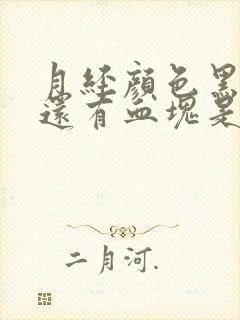 月經顏色黑
還有血塊是
二月河.